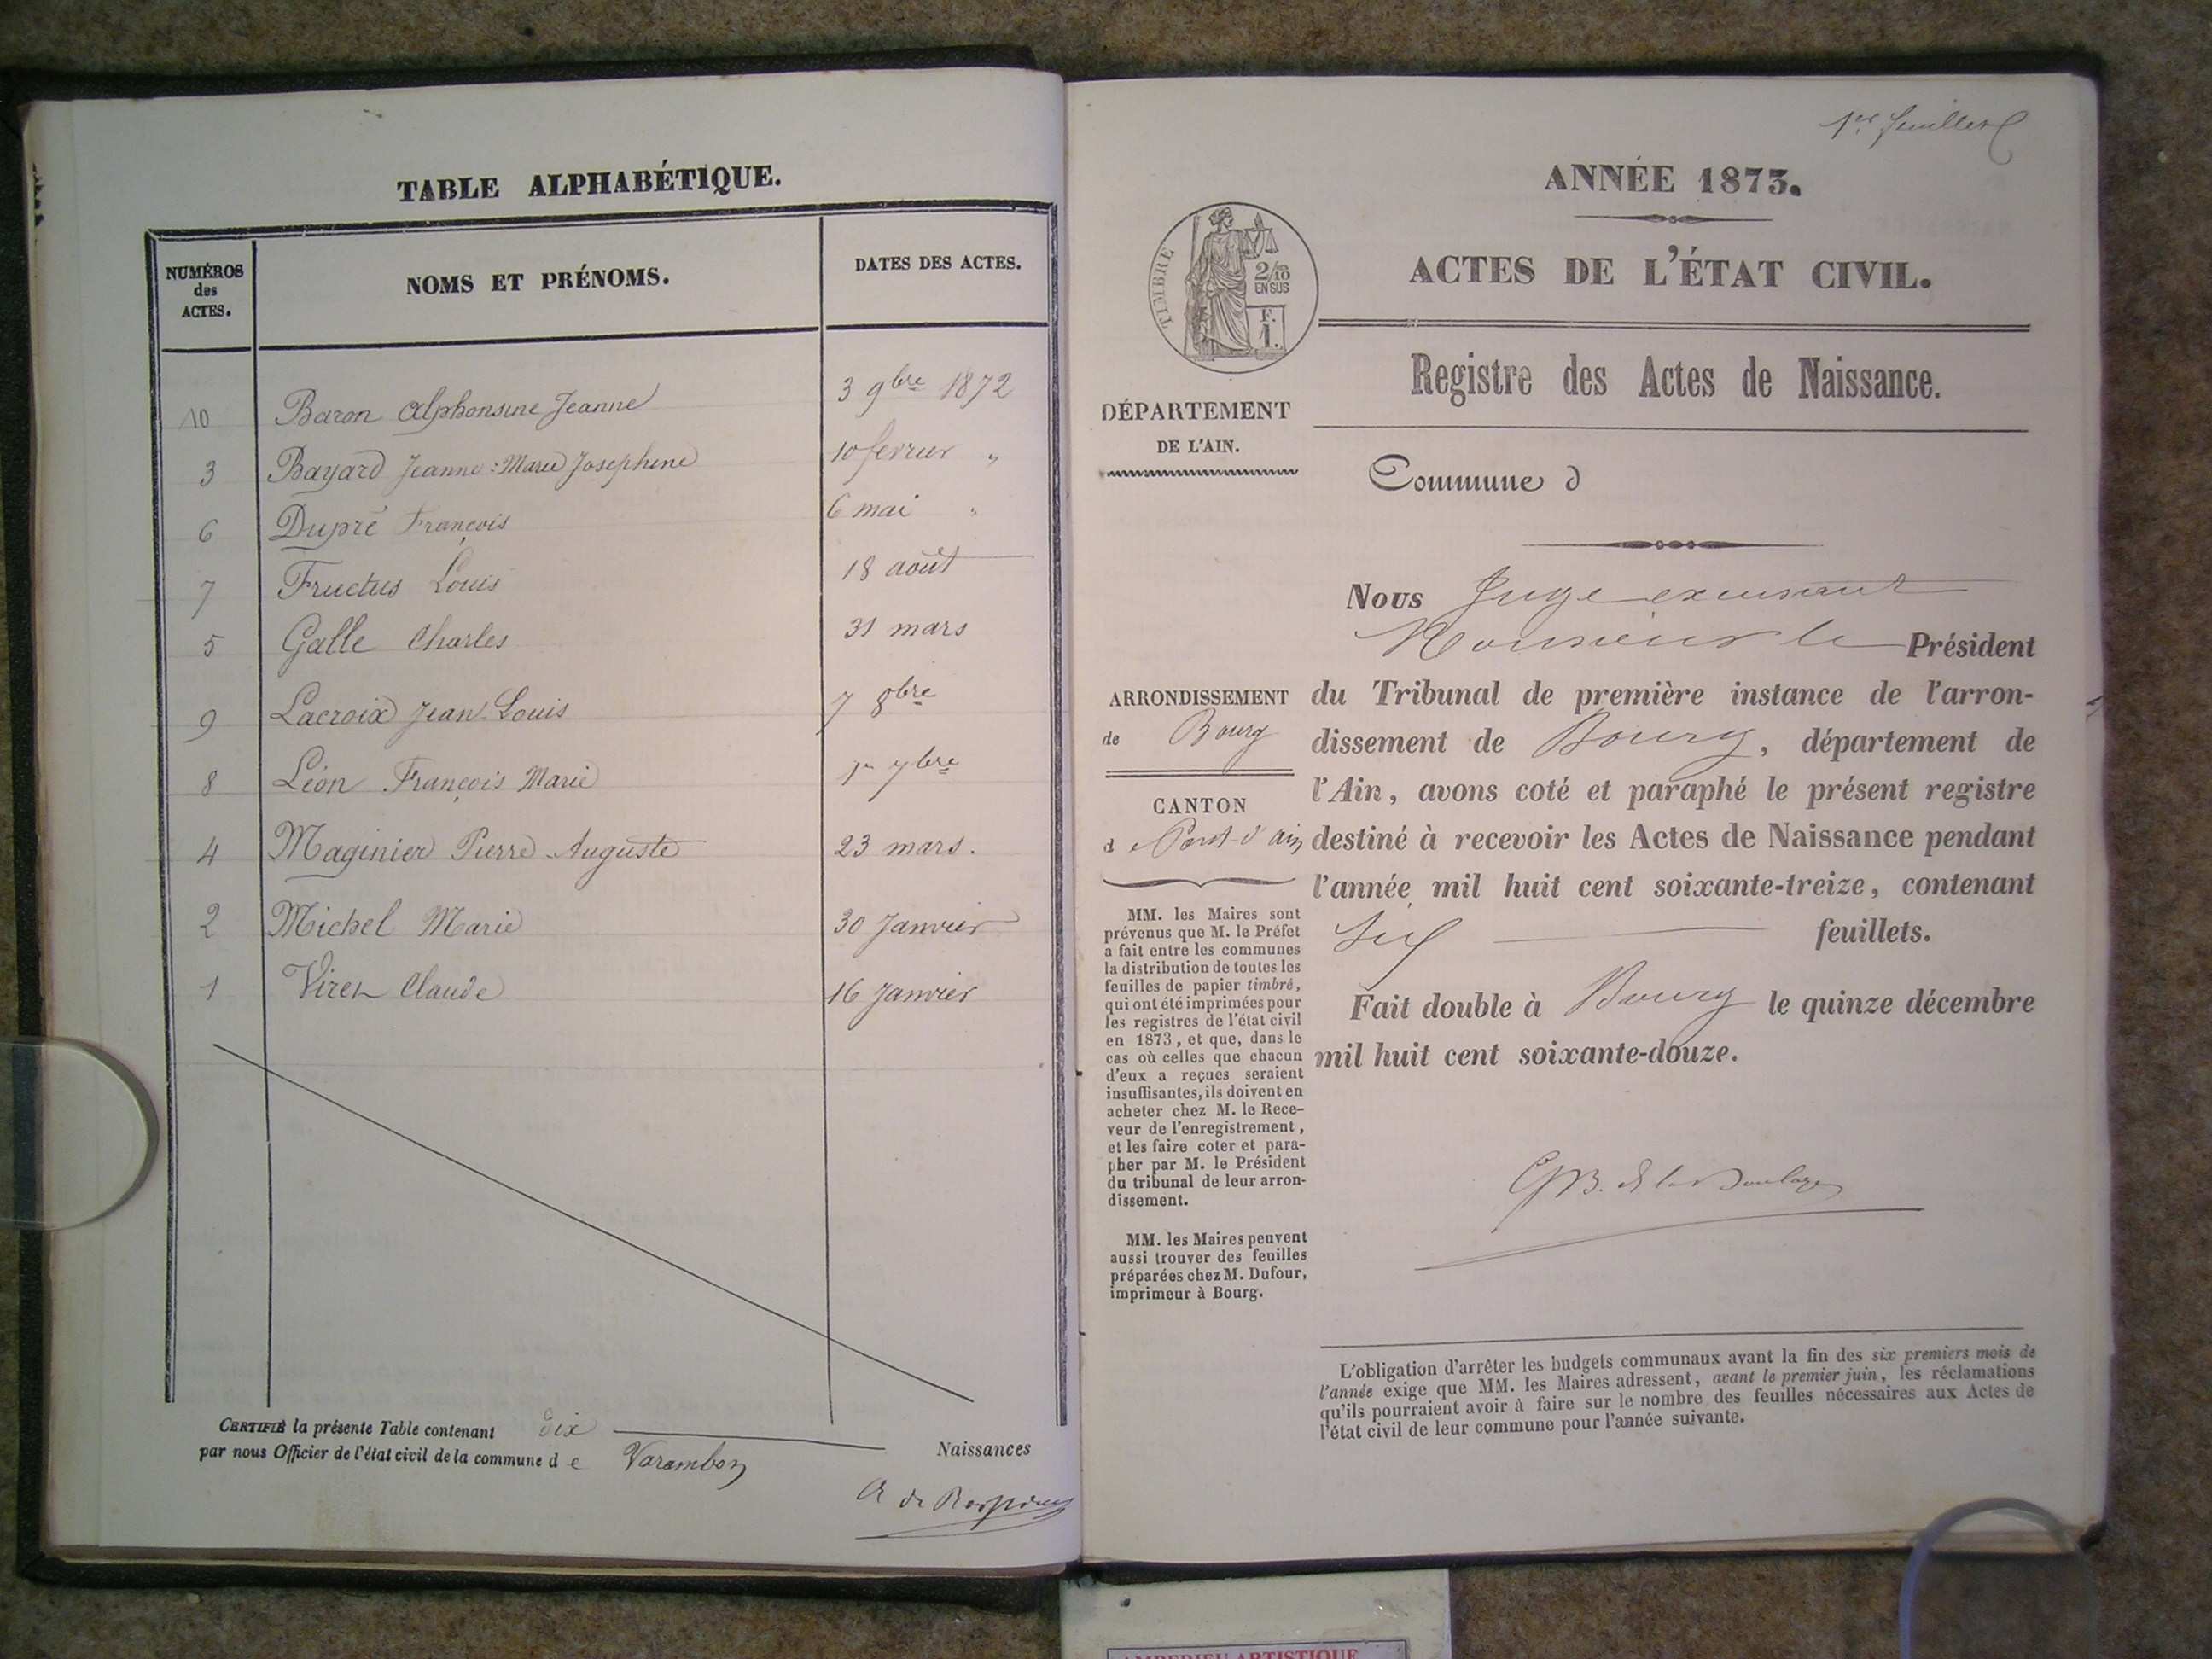 TABLE ALPHABÉTIQUE.
NUMÉROS des ACTES. NOMS ET PRÉNOMS. DATES DES ACTES.
10 Baron Alphonsine Jeanne 3 9bre 1872
3 Bayard Jeanne-Marie Josephine 10 fevrier "
6 Dupré François 6 mai "
7 Fructus Louis 18 août
5 Galle Charles 31 mars
9 Lacroix Jean Louis 7 8bre
8 Léon François Marie 1er 7bre
4 Maginier Pierre Auguste 23 mars.
2 Michel Marie 30 Janvier
1 Viret Claude 16 Janvier
CERTIFIÉ la présente Table contenant dix Naissances
par nous Officier de l'état civil de la commune de Varambon
1er feuillet
ANNÉE 1873.
ACTES DE L'ÉTAT CIVIL.
TIMBRE
2/10
EN SUS
F.
1.
Registre des Actes de Naissance.
DÉPARTEMENT
DE L'AIN.
Commune d
ARRONDISSEMENT
de Bourg
CANTON
de Pont-d'ain
MM. les Maires sont
prévenus que M. le Préfet
a fait entre les communes
la distribution de toutes les
feuilles de papier timbré,
qui ont été imprimées pour
les registres de l'état civil
en 1873, et que, dans le
cas où celles que chacun
d'eux a reçues seraient
insuffisantes, ils doivent en
acheter chez M. le Rece-
veur de l'enregistrement,
et les faire coter et para-
pher par M. le Président
du tribunal de leur arron-
dissement.
MM. les Maires peuvent
aussi trouver des feuilles
préparées chez M. Dufour,
imprimeur à Bourg.
Nous Juge
Monsieur le Président
du Tribunal de première instance de l'arron-
dissement de Bourg, département de
l'Ain, avons coté et paraphé le présent registre
destiné à recevoir les Actes de Naissance pendant
l'année mil huit cent soixante-treize, contenant
Six feuillets.
Fait double à Bourg le quinze décembre
mil huit cent soixante-douze.
L'obligation d'arrêter les budgets communaux avant la fin des six premiers mois de
l'année exige que MM. les Maires adressent, avant le premier juin, les réclamations
qu'ils pourraient avoir à faire sur le nombre des feuilles nécessaires aux Actes de
l'état civil de leur commune pour l'année suivante.
ARTISTIQUE